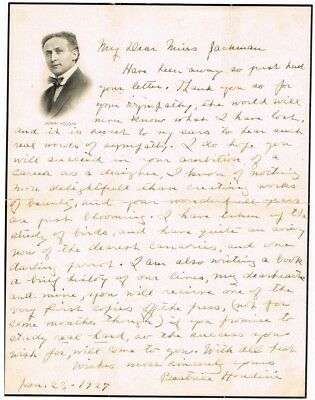 My Dear Miss Jackman
Have been away so just had
your letter. Thank you so for
your sympathy, the world will
never know what I have lost,
and it is sweet to my ears to hear such
real words of sympathy. I do hope you
will succeed in your ambition of a
career as a designer, I know of nothing
more delightful than creating works
of beauty, and your wonderful years
are just blooming. I have taken up the
study of birds, and have quite an aviary
now of the dearest canaries, and one
darling parrot. I am also writing a book
a brief history of our lives, my dearhearts
and mine, you will recieve one of the
very first copies off the press, (not for
some months though) if you promise to
study real hard, so the success you
wish for, will come to you. With all best
wishes most sincerely yours
Jan. 23 - 1927 Beatrice Houdini
HARRY HOUDINI